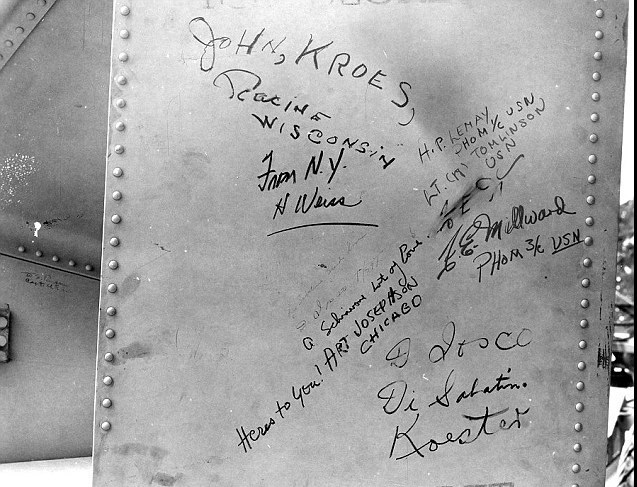 JOHN, KROES,
Racine
WISCONSIN
From N.Y.
H Weiss
H.P. LEMAY
PHOM 1/c USN
LT. (JG) TOMLINSON
USN
E.E. Millward
PHOM 3/c USN
a Schnavone Lot of Love
Heres to You! ART JOSEPHSON
CHICAGO
D Tosco
Di Sabatino.
Koester